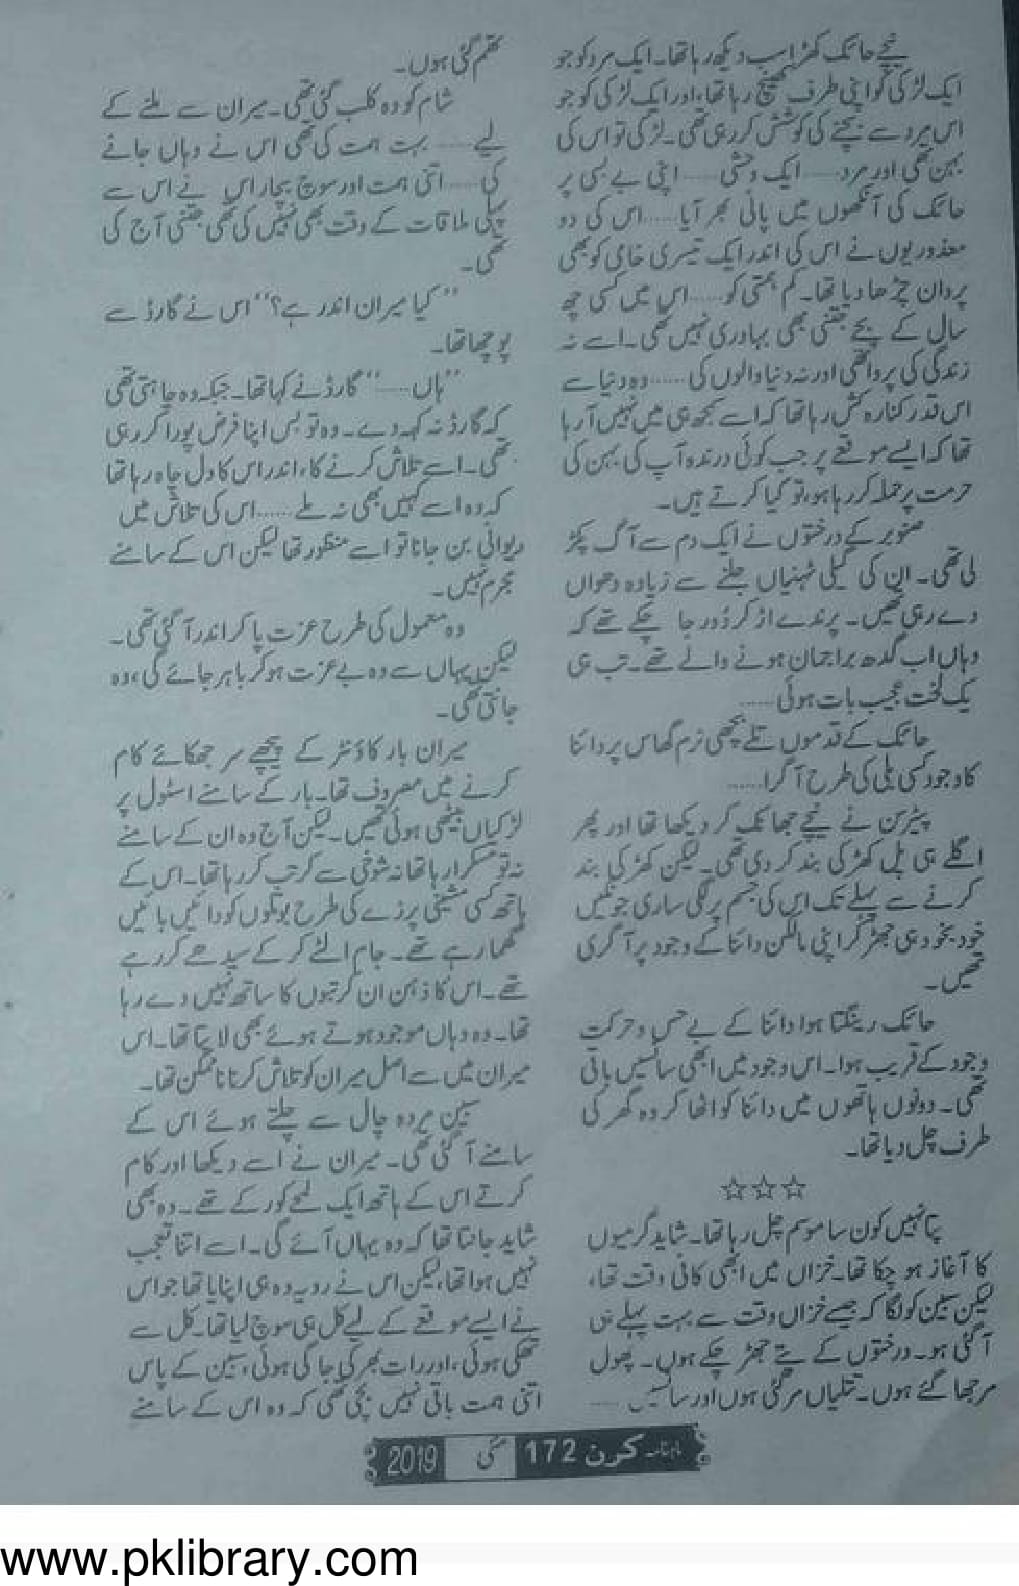 نیچے حائک کھڑا سب دیکھ رہا تھا۔ ایک مرد کو جو
ایک لڑکی کو اپنی طرف کھینچ رہا تھا، اور ایک لڑکی کو جو
اس مرد سے بچنے کی کوشش کر رہی تھی۔ لڑکی تو اس کی
بہن تھی اور مرد...... ایک وحشی...... اپنی بے بسی پر
حائک کی آنکھوں میں پانی بھر آیا...... اس کی دو
معذوریوں نے اس کی اندر ایک تیسری خامی کو بھی
پروان چڑھا دیا تھا۔ کم ہمتی کو...... اس میں کسی چھ
سال کے بچے جتنی بھی بہادری نہیں تھی۔ اسے نہ
زندگی کی پروا تھی اور نہ دنیا والوں کی...... وہ دنیا سے
اس قدر کنارہ کش رہا تھا کہ اسے سمجھ ہی میں نہیں آ رہا
تھا کہ ایسے موقعے پر جب کوئی درندہ آپ کی بہن کی
حرمت پر حملہ کر رہا ہو، تو کیا کرتے ہیں۔
صنوبر کے درختوں نے ایک دم سے آگ پکڑ
لی تھی۔ ان کی گیلی ٹہنیاں جلنے سے زیادہ دھواں
دے رہی تھیں۔ پرندے اڑ کر دُور جا چکے تھے کہ
وہاں اب گدھ براجمان ہونے والے تھے۔ تب ہی
یک لخت عجیب بات ہوئی......
حائک کے قدموں تلے بچھی نرم گھاس پر دائنا
کا وجود کسی بلی کی طرح آ گرا......
پیٹرسن نے نیچے جھانک کر دیکھا تھا اور پھر
اگلے ہی پل کھڑکی بند کر دی تھی۔ لیکن کھڑکی بند
کرنے سے پہلے تک اس کی جسم پر لگی ساری جونکیں
خود بخود ہی جھڑ کر اپنی مالکن دائنا کے وجود پر آ گری
تھیں۔
حائک رینگتا ہوا دائنا کے بے حس و حرکت
وجود کے قریب ہوا۔ اس وجود میں ابھی سانسیں باقی
تھی۔ دونوں ہاتھوں میں دائنا کو اٹھا کر وہ گھر کی
طرف چل دیا تھا۔
☆☆☆
پتا نہیں کون سا موسم چل رہا تھا۔ شاید گرمیوں
کا آغاز ہو چکا تھا۔ خزاں میں ابھی کافی وقت تھا،
لیکن سبین کو لگا کہ جیسے خزاں وقت سے بہت پہلے ہی
آ گئی ہو۔ درختوں کے پتے جھڑ چکے ہوں۔ پھول
مرجھا گئے ہوں۔ تتلیاں مر گئی ہوں اور سانسیں......
تھم گئی ہوں۔
شام کو وہ کلب گئی تھی۔ میران سے ملنے کے
لیے...... بہت ہمت کی تھی اس نے وہاں جانے
کی...... اتنی ہمت اور سوچ بچار اس نے اس سے
پہلی ملاقات کے وقت بھی نہیں کی تھی جتنی آج کی
تھی۔
”کیا میران اندر ہے؟“ اس نے گارڈ سے
پوچھا تھا۔
”ہاں......“ گارڈ نے کہا تھا۔ جبکہ وہ چاہتی تھی
کہ گارڈ نہ کہہ دے۔ وہ تو بس اپنا فرض پورا کر رہی
تھی۔ اسے تلاش کرنے کا، اندر اس کا دل چاہ رہا تھا
کہ وہ اسے کہیں بھی نہ ملے...... اس کی تلاش میں
دیوانی بن جانا تو اسے منظور تھا لیکن اس کے سامنے
مجرم نہیں۔
وہ معمول کی طرح عزت پا کر اندر آ گئی تھی۔
لیکن یہاں سے وہ بے عزت ہو کر باہر جائے گی، وہ
جانتی تھی۔
میران بار کاؤنٹر کے پیچھے سر جھکائے کام
کرنے میں مصروف تھا۔ بار کے سامنے اسٹول پر
لڑکیاں بیٹھی ہوئی تھیں۔ لیکن آج وہ ان کے سامنے
نہ تو مسکرا رہا تھا نہ شوخی سے کرتب کر رہا تھا۔ اس کے
ہاتھ کسی مشینی پرزے کی طرح بوتلوں کو دائیں بائیں
گھما رہے تھے۔ جام الٹے کر کے سیدھے کر رہے
تھے۔ اس کا ذہن ان کرتبوں کا ساتھ نہیں دے رہا
تھا۔ وہ وہاں موجود ہوتے ہوئے بھی لاپتا تھا۔ اس
میران میں سے اصل میران کو تلاش کرنا ناممکن تھا۔
سبین مردہ چال سے چلتے ہوئے اس کے
سامنے آ گئی تھی۔ میران نے اسے دیکھا اور کام
کرتے اس کے ہاتھ ایک لمحے کو رکے تھے۔ وہ بھی
شاید جانتا تھا کہ وہ یہاں آئے گی۔ اسے اتنا تعجب
نہیں ہوا تھا، لیکن اس نے رویہ وہ ہی اپنایا تھا جو اس
نے ایسے موقعے کے لیے کل ہی سوچ لیا تھا۔ کل سے
تھکی ہوئی، اور رات بھر کی جاگی ہوئی، سبین کے پاس
اتنی ہمت باقی نہیں بچی تھی کہ وہ اس کے سامنے
ماہنامہ کرن 172 مئی 2019
www.pklibrary.com